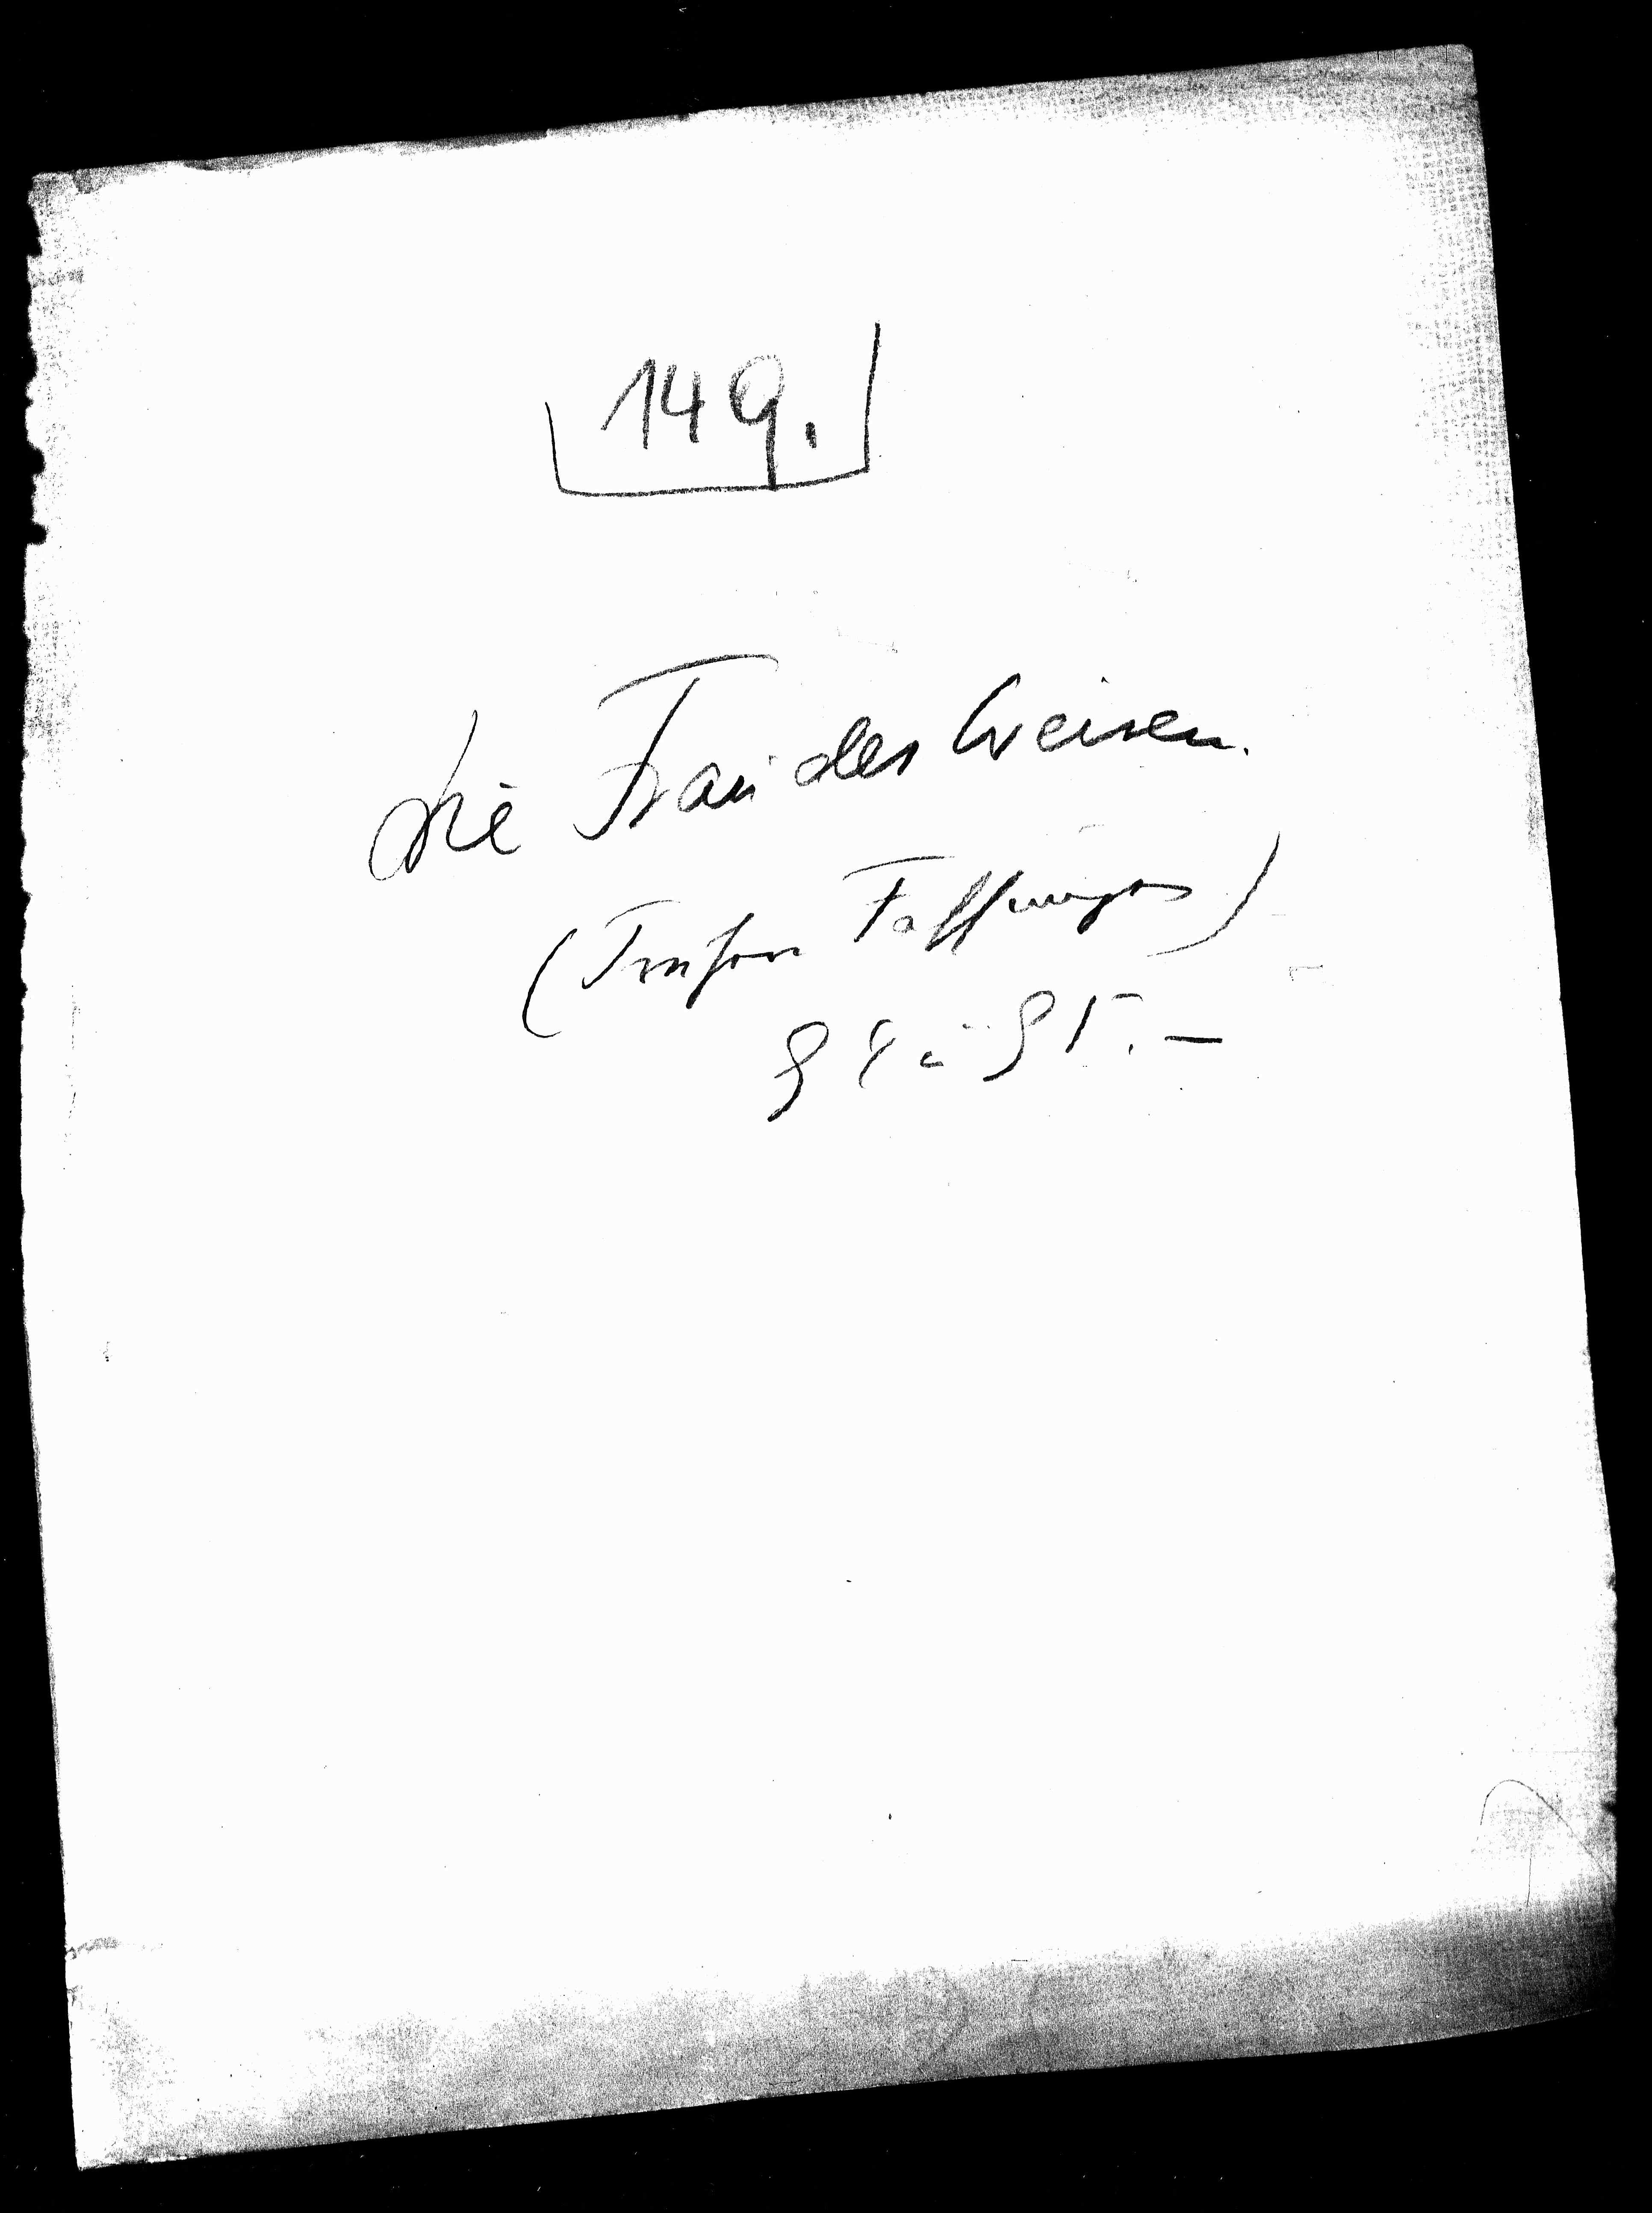 149.
Die Frau des Weisen.
(Frühere Fassungen)
94 u 95.–